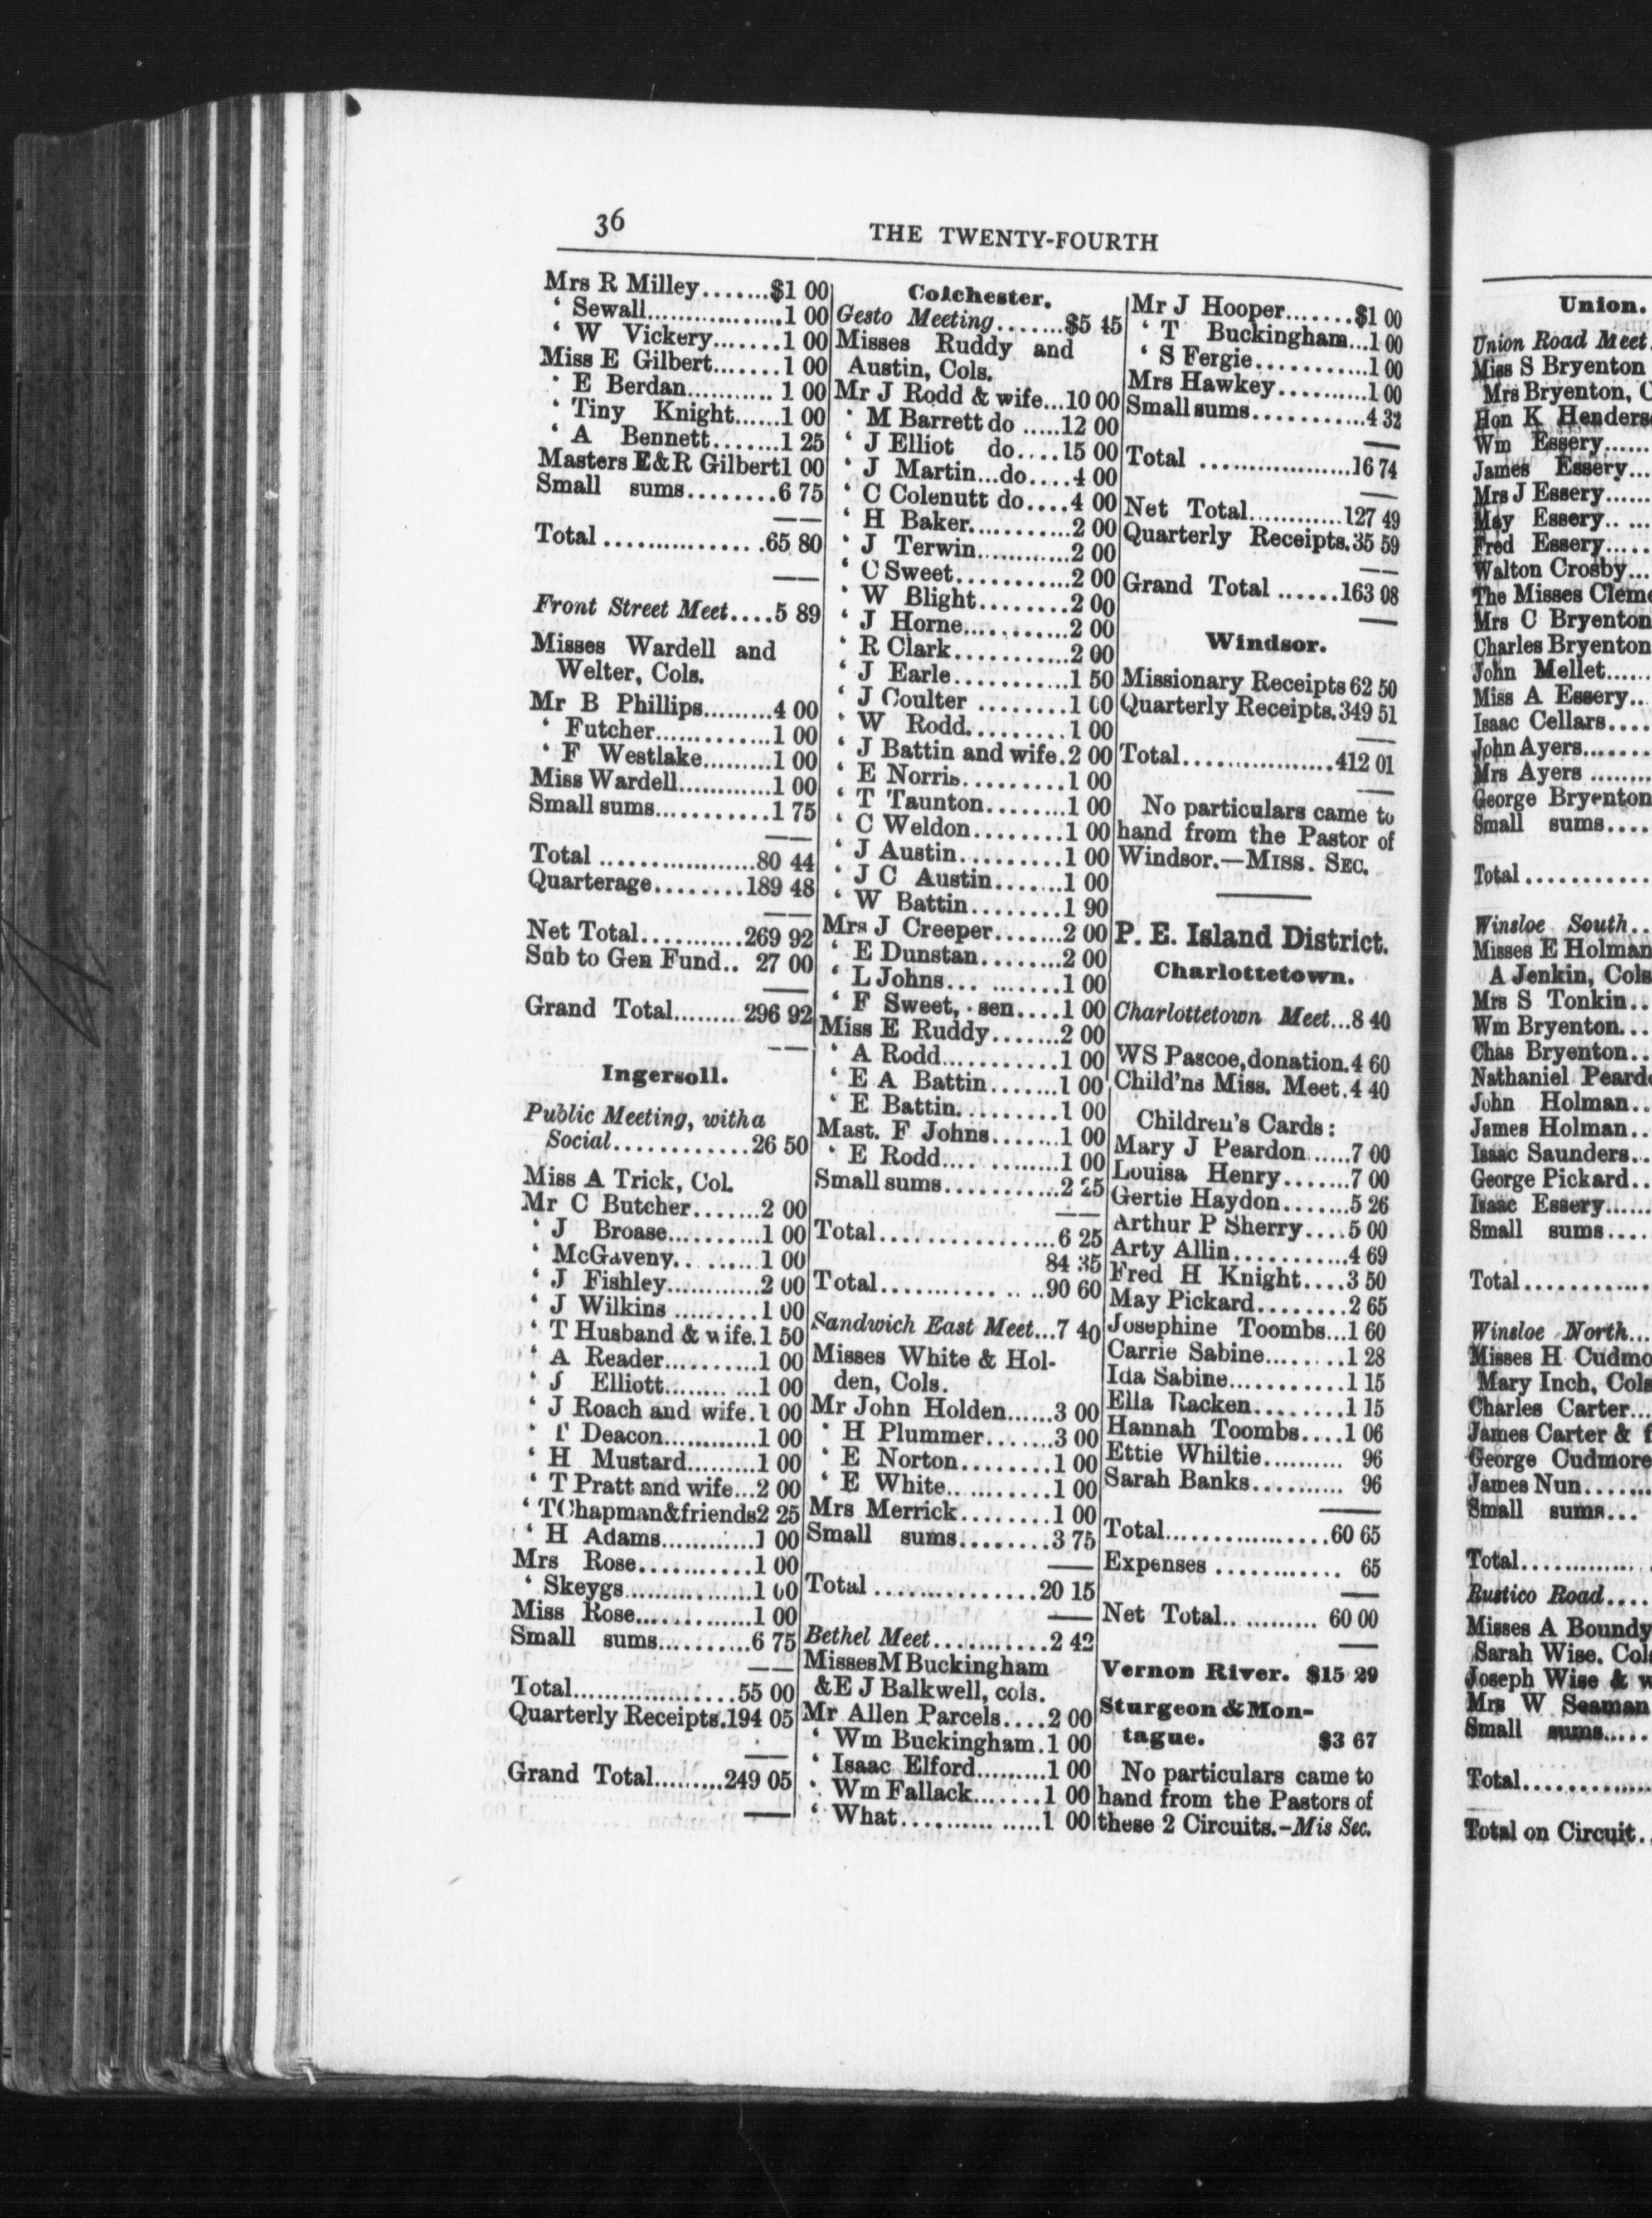 36
THE TWENTY-FOURTH
Mrs R Milley.......$1 00
‘ Sewall.................1 00
‘ W Vickery.......1 00
Miss E Gilbert.......1 00
‘ E Berdan.......... 1 00
‘ Tiny Knight......1 00
‘ A Bennett.......1 25
Masters E&R Gilbert1 00
Small sums........6 75
Total ................65 80
Front Street Meet....5 89
Misses Wardell and
Welter, Cols.
Mr B Phillips.........4 00
‘ Futcher.............1 00
‘ F Westlake.........1 00
Miss Wardell............1 00
Small sums...........1 75
Total ..................80 44
Quarterage........189 48
Net Total...........269 92
Sub to Gen Fund.. 27 00
Grand Total.........296 92
Ingersoll.
Public Meeting, with a
Social............26 50
Miss A Trick, Col.
Mr C Butcher.......2 00
‘ J Broase..........1 00
‘ McGaveny.. ......1 00
‘ J Fishley............2 00
‘ J Wilkins .........1 00
‘ T Husband & wife.1 50
‘ A Reader..........1 00
‘ J Elliott........ ...1 00
‘ J Roach and wife.1 00
‘ T Deacon............1 00
‘ H Mustard.........1 00
‘ T Pratt and wife...2 00
‘ TChapman&friends2 25
‘ H Adams............1 00
Mrs Rose...........1 00
‘ Skeygs................1 00
Miss Rose.............1 00
Small sums.........6 75
Total..................55 00
Quarterly Receipts.194 05
Grand Total.........249 05
Colchester.
Gesto Meeting.......$5 45
Misses Ruddy and
Austin, Cols.
Mr J Rodd & wife...10 00
‘ M Barrett do .....12 00
‘ J Elliot do....15 00
‘ J Martin...do....4 00
‘ C Colenutt do....4 00
‘ H Baker...........2 00
‘ J Terwin............2 00
‘ C Sweet...........2 00
‘ W Blight........2 00
‘ J Horne...........2 00
‘ R Clark...........2 00
‘ J Earle...........1 50
‘ J Coulter ........1 00
‘ W Rodd..........1 00
‘ J Battin and wife.2 00
‘ E Norris..........1 00
‘ T Taunton........1 00
‘ C Weldon.........1 00
‘ J Austin..........1 00
‘ J C Austin.......1 00
‘ W Battin.........1 90
Mrs J Creeper.......2 00
‘ E Dunstan........2 00
‘ L Johns... .......1 00
‘ F Sweet, sen....1 00
Miss E Ruddy.......2 00
‘ A Rodd...........1 00
‘ E A Battin.......1 00
‘ E Battin..........1 00
Mast. F Johns.......1 00
‘ E Rodd... ........1 00
Small sums...........2 25
Total.................6 25
84 35
Total.............. . ..90 60
Sandwich East Meet...7 40
Misses White & Hol-
den, Cols.
Mr John Holden......3 00
‘ H Plummer.......3 00
‘ E Norton.........1 00
‘ E White.. ........1 00
Mrs Merrick........1 00
Small sums........3 75
Total ................20 15
Bethel Meet...........2 42
MissesMBuckingham
&E J Balkwell, cols.
Mr Allen Parcels....2 00
‘ Wm Buckingham.1 00
‘ Isaac Elford.........1 00
‘ Wm Fallack.......1 00
‘ What.......... .....1 00
Mr J Hooper.......$1 00
‘ T Buckingham...1 00
‘ S Fergie...........1 00
Mrs Hawkey..........1 00
Small sums...........4 32
Total .................16 74
Net Total............127 49
Quarterly Receipts.35 59
Grand Total ......163 08
Windsor.
Missionary Receipts 62 50
Quarterly Receipts.349 51
Total................412 01
No particulars came to
hand from the Pastor of
Windsor.—MISS. SEC.
P. E. Island District.
Charlottetown.
Charlottetown Meet...8 40
WS Pascoe,donation.4 60
Child'ns Miss. Meet.4 40
Children's Cards:
Mary J Peardon.....7 00
Louisa Henry.......7 00
Gertie Haydon.......5 26
Arthur P Sherry....5 00
Arty Allin............4 69
Fred H Knight....3 50
May Pickard........2 65
Josephine Toombs...1 60
Carrie Sabine........1 28
Ida Sabine...........1 15
Ella Racken.........1 15
Hannah Toombs....1 06
Ettie Whiltie.......... 96
Sarah Banks.......... 96
Total.................60 65
Expenses ............ 65
Net Total.......... 60 00
Vernon River. $15 29
Sturgeon & Mon-
tague. $3 67
No particulars came to
hand from the Pastors of
these 2 Circuits.-Mis Sec.
Union.
Union Road Meet.
Miss S Bryenton
Mrs Bryenton, C
Hon K Henders
Wm Essery......
James Essery...
Mrs J Essery......
May Essery.. ...
Fred Essery.....
Walton Crosby...
The Misses Cleme
Mrs C Bryenton
Charles Bryenton
John Mellet......
Miss A Essery..
Isaac Cellars....
John Ayers.......
Mrs Ayers ........
George Bryenton
Small sums....
Total............
Winsloe South..
Misses E Holman
A Jenkin, Cols
Mrs S Tonkin..
Wm Bryenton...
Chas Bryenton..
Nathaniel Peard
John Holman..
James Holman..
Isaac Saunders..
George Pickard..
Isaac Essery.....
Small sums....
Total............
Winsloe North...
Misses H Cudmo
Mary Inch, Cols
Charles Carter...
James Carter & f
George Cudmore
James Nun.......
Small sums...
Total............
Rustico Road....
Misses A Boundy
Sarah Wise, Col
Joseph Wise & w
Mrs W Seaman
Small sums.....
Total............
Total on Circuit..